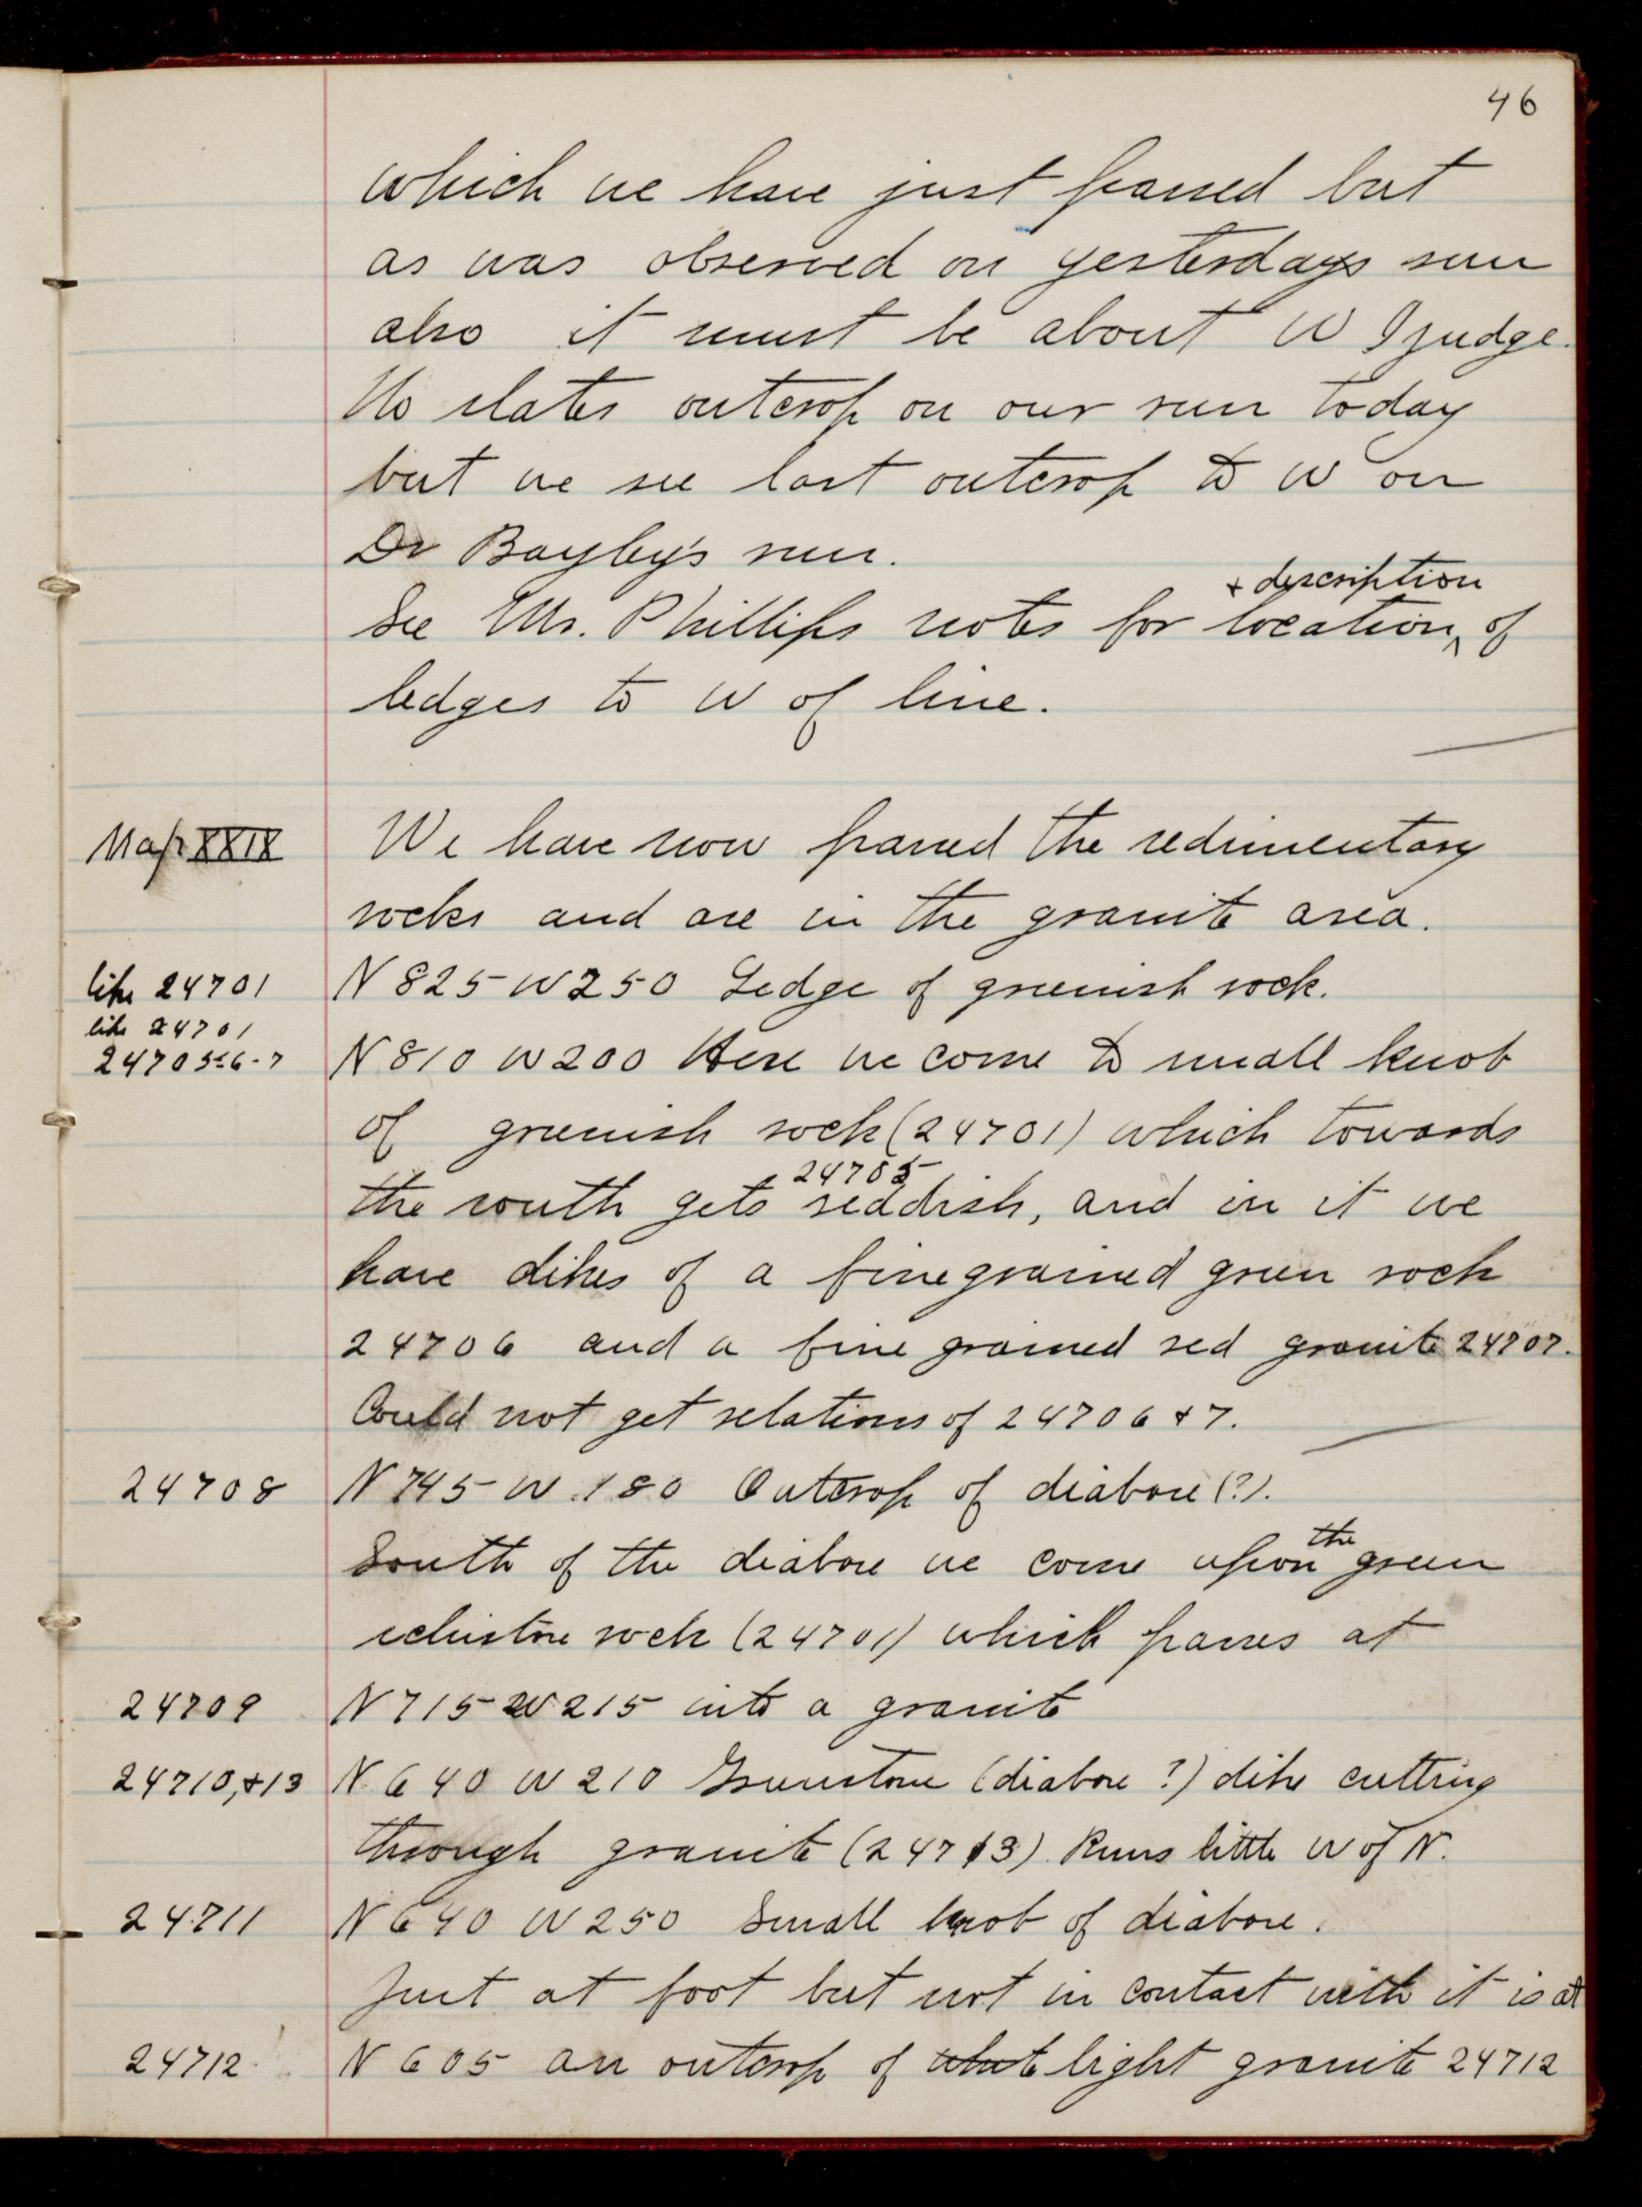 46
which we have just passed but
as was observed on yesterdays run
also it must be about W I judge.
No slates outcrop on our run today
but we see last outcrop to W on
Dr Bayley's run.
+ description
See Mr. Phillips notes for location ^ of
ledges to W of line.
Map XXIX We have now passed the sedimentary
rocks and are in the granite area.
like 24701 N 825 W 250 Ledge of greenish rock.
like 24701
24705-6-7 N 810 W 200 Here we come to small knob
of greenish rock (24701) which towards
24705
the south gets reddish, and in it we
have dikes of a finegrained green rock
24706 and a fine grained red granite 24707.
Could not get relations of 24706 + 7.
24708 N 745 W 180 Outcrop of diabase (?).
the
South of the diabase we come upon green
schistose rock (24701) which passes at
24709 N 715 W 215 into a granite
24710, +13 N 640 W 210 Greenstone (diabase ?) dike cutting
through granite (24713). Runs little W of N.
24711 N 640 W 250 Small knob of diabase.
Just at foot but not in contact with it is at
24712 N 605 an outcrop of light granite 24712